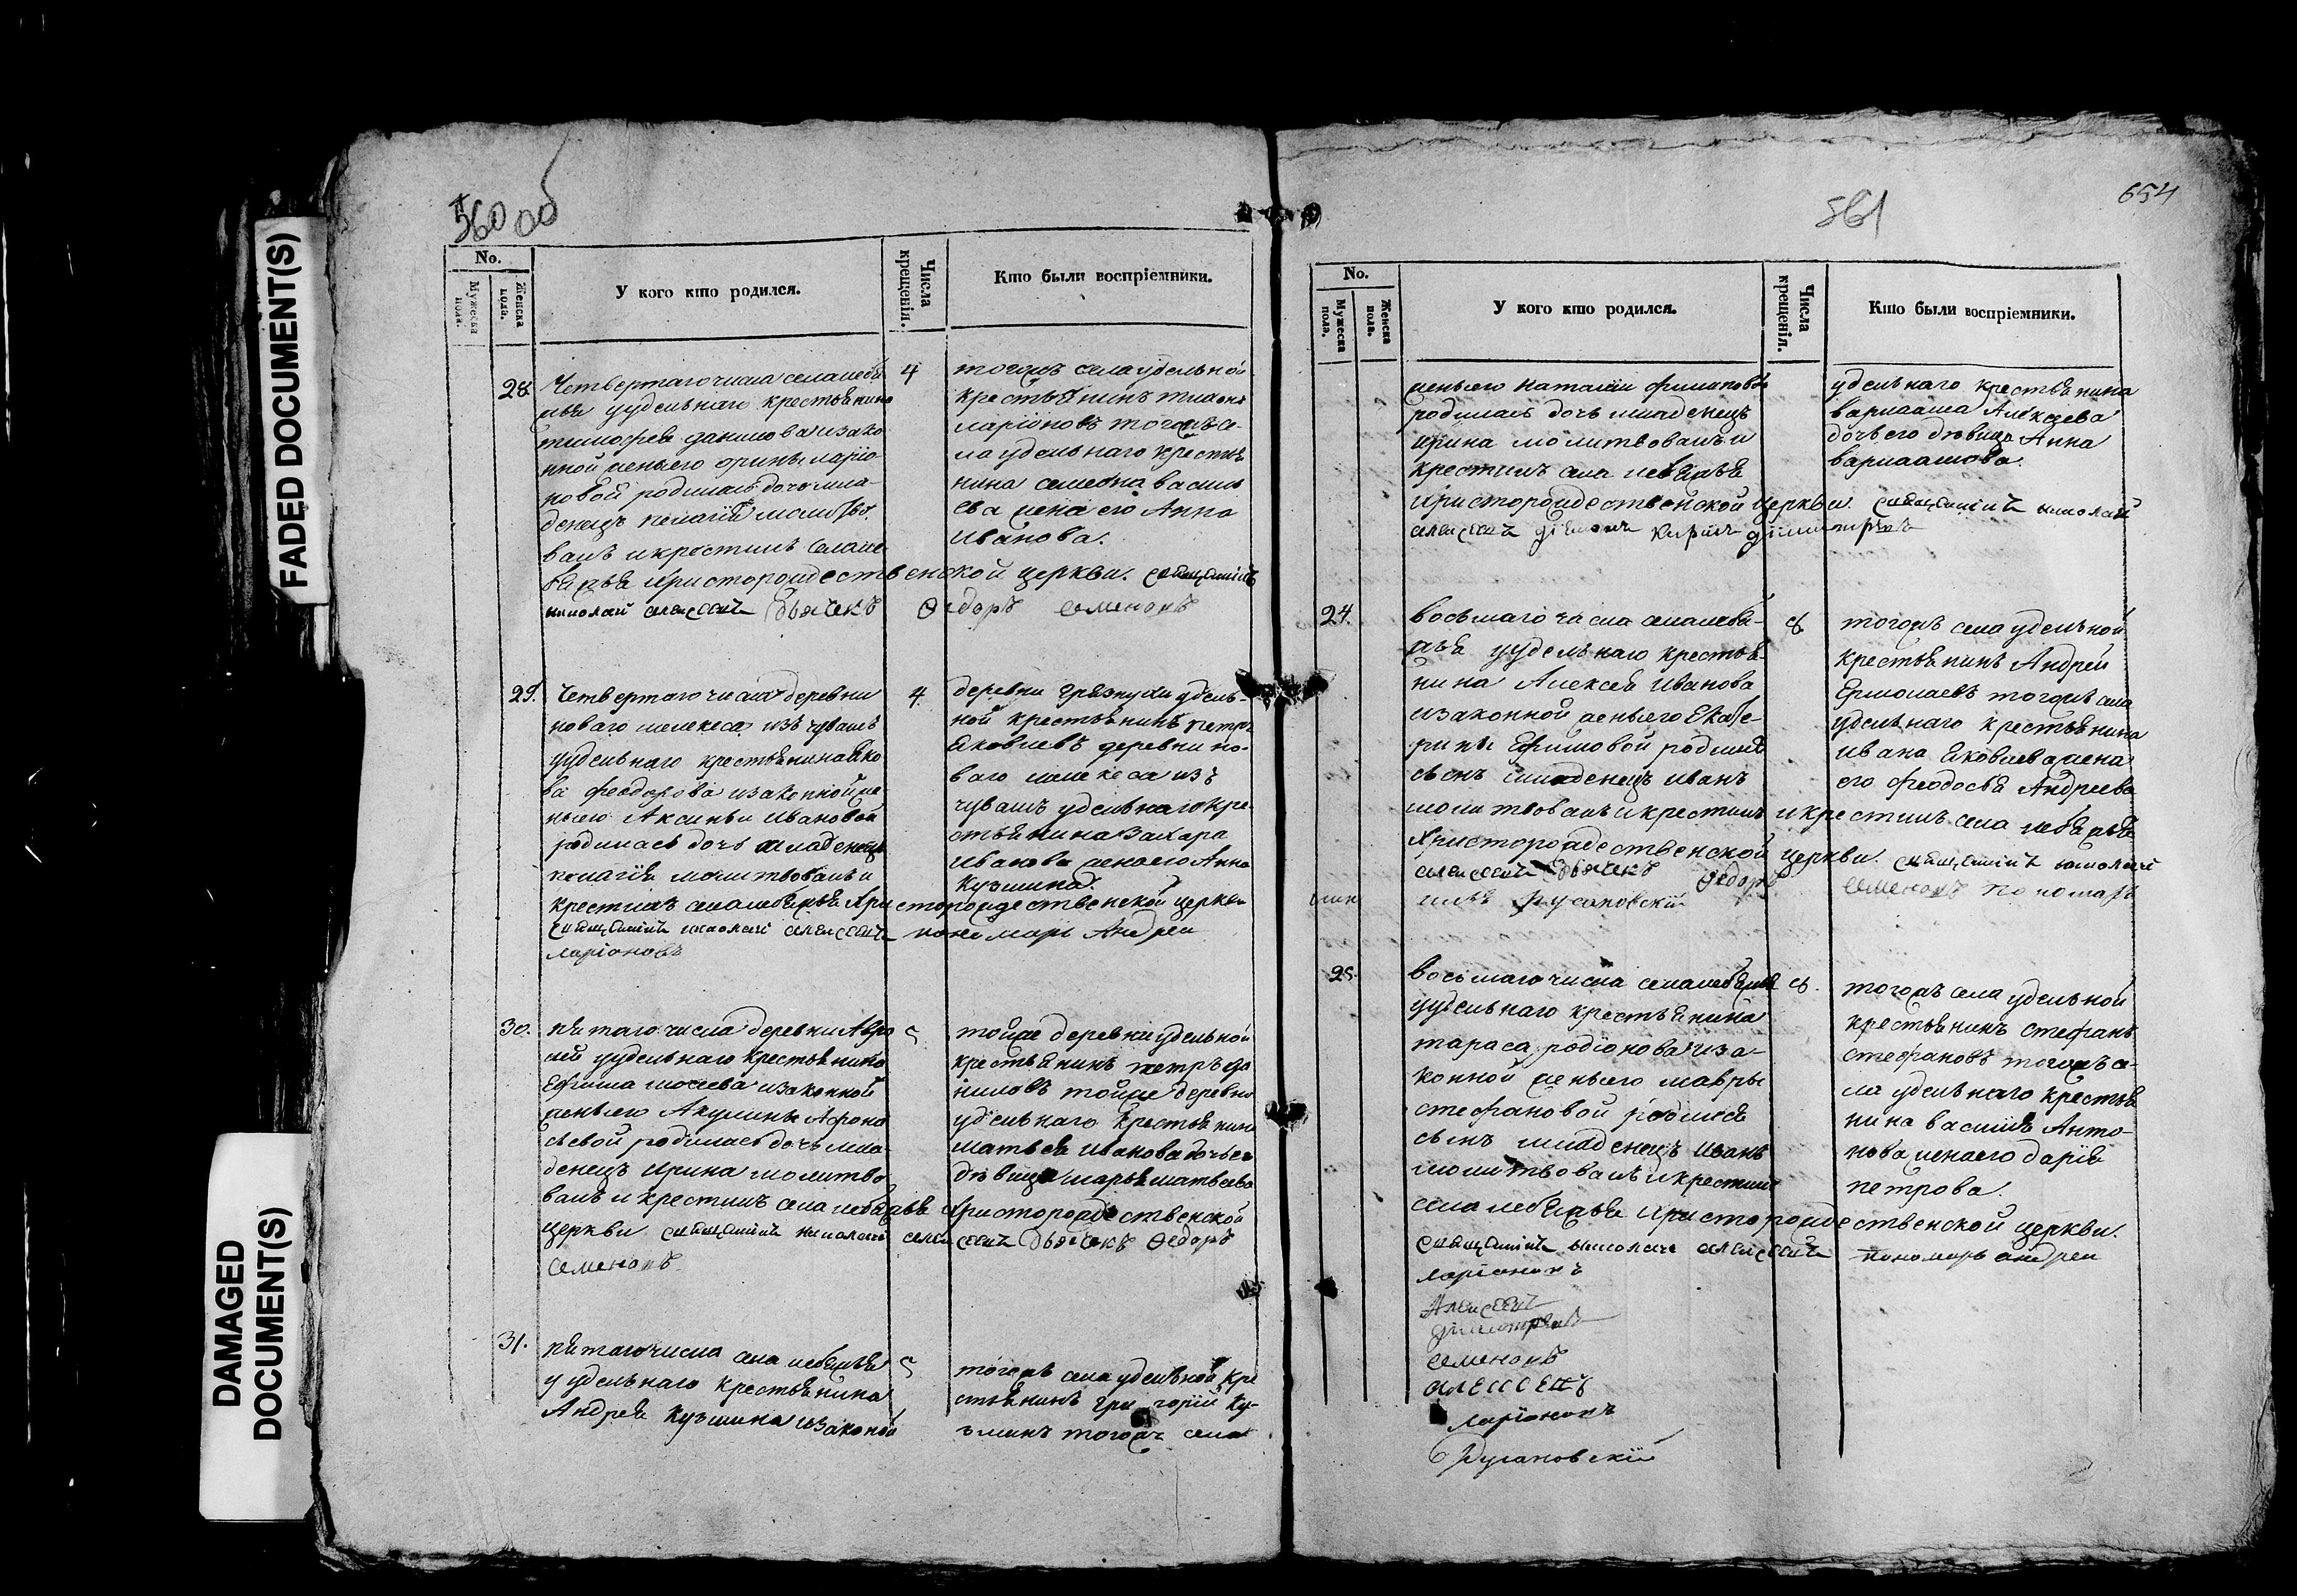 FADED DOCUMENT(S)
DAMAGED
DOCUMENT(S)
560 об
No.
Мужеска пола.
Женска пола.
У кого кто родился.
Числа крещенія.
Кто были воспріемники.
28.
Четвертаго числа села лебя
жья уудельнаго крестьянина
тимофея данилова изако
нной женыего орины ларіо
новой родилась дочь мла-
денецъ пелагія молитво
валъ икрестилъ села ле
бяжья Христорождественской церкви. священникъ
николай алексеевъ дьячекъ Ѳедоръ семеновъ
4
тогожъ села удельной
крестьянинъ
ларіоновъ тогожъ се-
ла удельнаго крестья
нина семена василь
ева жена его Анна
Иванова.
29.
Четвертаго числа деревни
новаго мелекеса изъ чувашъ
уудельнаго крестьянина Яко
ва феодорова изаконной же
ныего Аксиньи Ивановой
родилась дочь младенецъ
пелагія молитвовалъ и
крестилъ села лебяжья Христорождественской церкви
священникъ николай алексеевъ пономарь Андреи
ларіоновъ
4.
деревни грязнухи удель-
ной крестьянинъ петръ
Яковлевъ деревни но-
ваго мелекеса изъ
чувашъ удельнаго кре
стьянина Захара
Иванова женаего Анна
Кузмина.
30.
пятаго числа деревни Авра
лей уудельнаго крестьянина
Ефима изаконной
женыего Акулины Афона
сьевой родилась дочь мла
денецъ Ирина молитво
валъ и крестилъ села лебяжья Христорождественской
церкви священникъ николай алексеевъ дьячекъ Ѳедоръ
семеновъ
5
тойже деревни удельной
крестьянинъ петръ да
ниловъ тойже деревни
удельнаго крестьянина
матвея Иванова дочьего
девица марья матвеева
31.
пятаго числа села лебяжья
у удельнаго крестьянина
Андрея Кузмина изаконой
5
тогожъ села удельной кре
стьянинъ григорій Ку-
зминъ тогожъ села
561
654
No.
Мужеска пола.
Женска пола.
У кого кто родился.
Числа крещенія.
Кто были воспріемники.
женыего наталіи филиповы
родилась дочь младенецъ
Ирина молитвовалъ и
крестилъ села лебяжья
Христорождественской церкви. священникъ николай
алексеевъ діаконъ Кирилъ димитріевъ
удельнаго крестьянина
варлаама Алексеева
дочьего девица Анна
варлаамова.
24.
восьмаго числа села лебя-
жья уудельнаго крестья-
нина Алексея Иванова
изаконной женыего Екате-
рины Ефимовой родился
сынъ младенецъ иванъ
молитвовалъ икрестилъ икрестилъ села лебяжья
Христорождественской церкви. священникъ николай
алексеевъ дьячекъ Ѳедоръ семеновъ пономарь
илья Русановскій
8
тогожъ села удельной
крестьянинъ Андрей
Ермолаевъ тогожъ села
удельнаго крестьянина
ивана Яковлева жена
его феодосья Андреева
25.
восьмаго числа села лебяжья
уудельнаго крестьянина
тараса родіонова иза-
конной женыего мавры
стефановой родился
сынъ младенецъ Иванъ
молитвовалъ икрестилъ
села лебяжья Христорождественской церкви.
священникъ николай алексеевъ пономарь андреи
ларіоновъ
8.
тогожъ села удельной
крестьянинъ стефанъ
стефановъ тогожъ се-
ла удельнаго крестья
нина василья Анто-
нова женаего дарія
петрова.
Алексеевъ
димитріевъ
семеновъ
алексеевъ
ларіоновъ
Русановскій